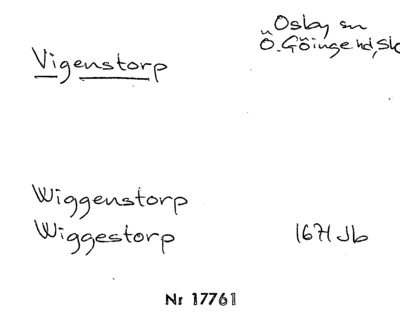 Osby sn
Vigenstorp
Ö. Göinge hd, Sk
Wiggenstorp
Wiggestorp 1671 Jb
Nr 17761